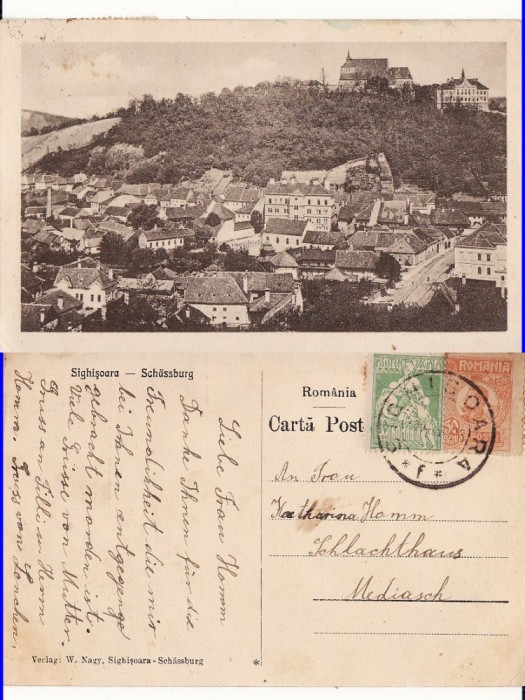 Sighișoara — Schässburg
România
Cartă Post
ROMANIA
SIGHISOARA
* f *
Liebe Frau Homm
Danke Ihnen für die
Freundlichkeit die mir
bei Ihnen entgegenge
gebracht worden ist.
Viele Grüsse von Mutter.
Gruss an Filli u. Herrn
Homm. Gruss von Lenchen.
An Frau
Katharina Homm
Schlachthaus
Mediasch
Verlag: W. Nagy, Sighișoara - Schässburg
*